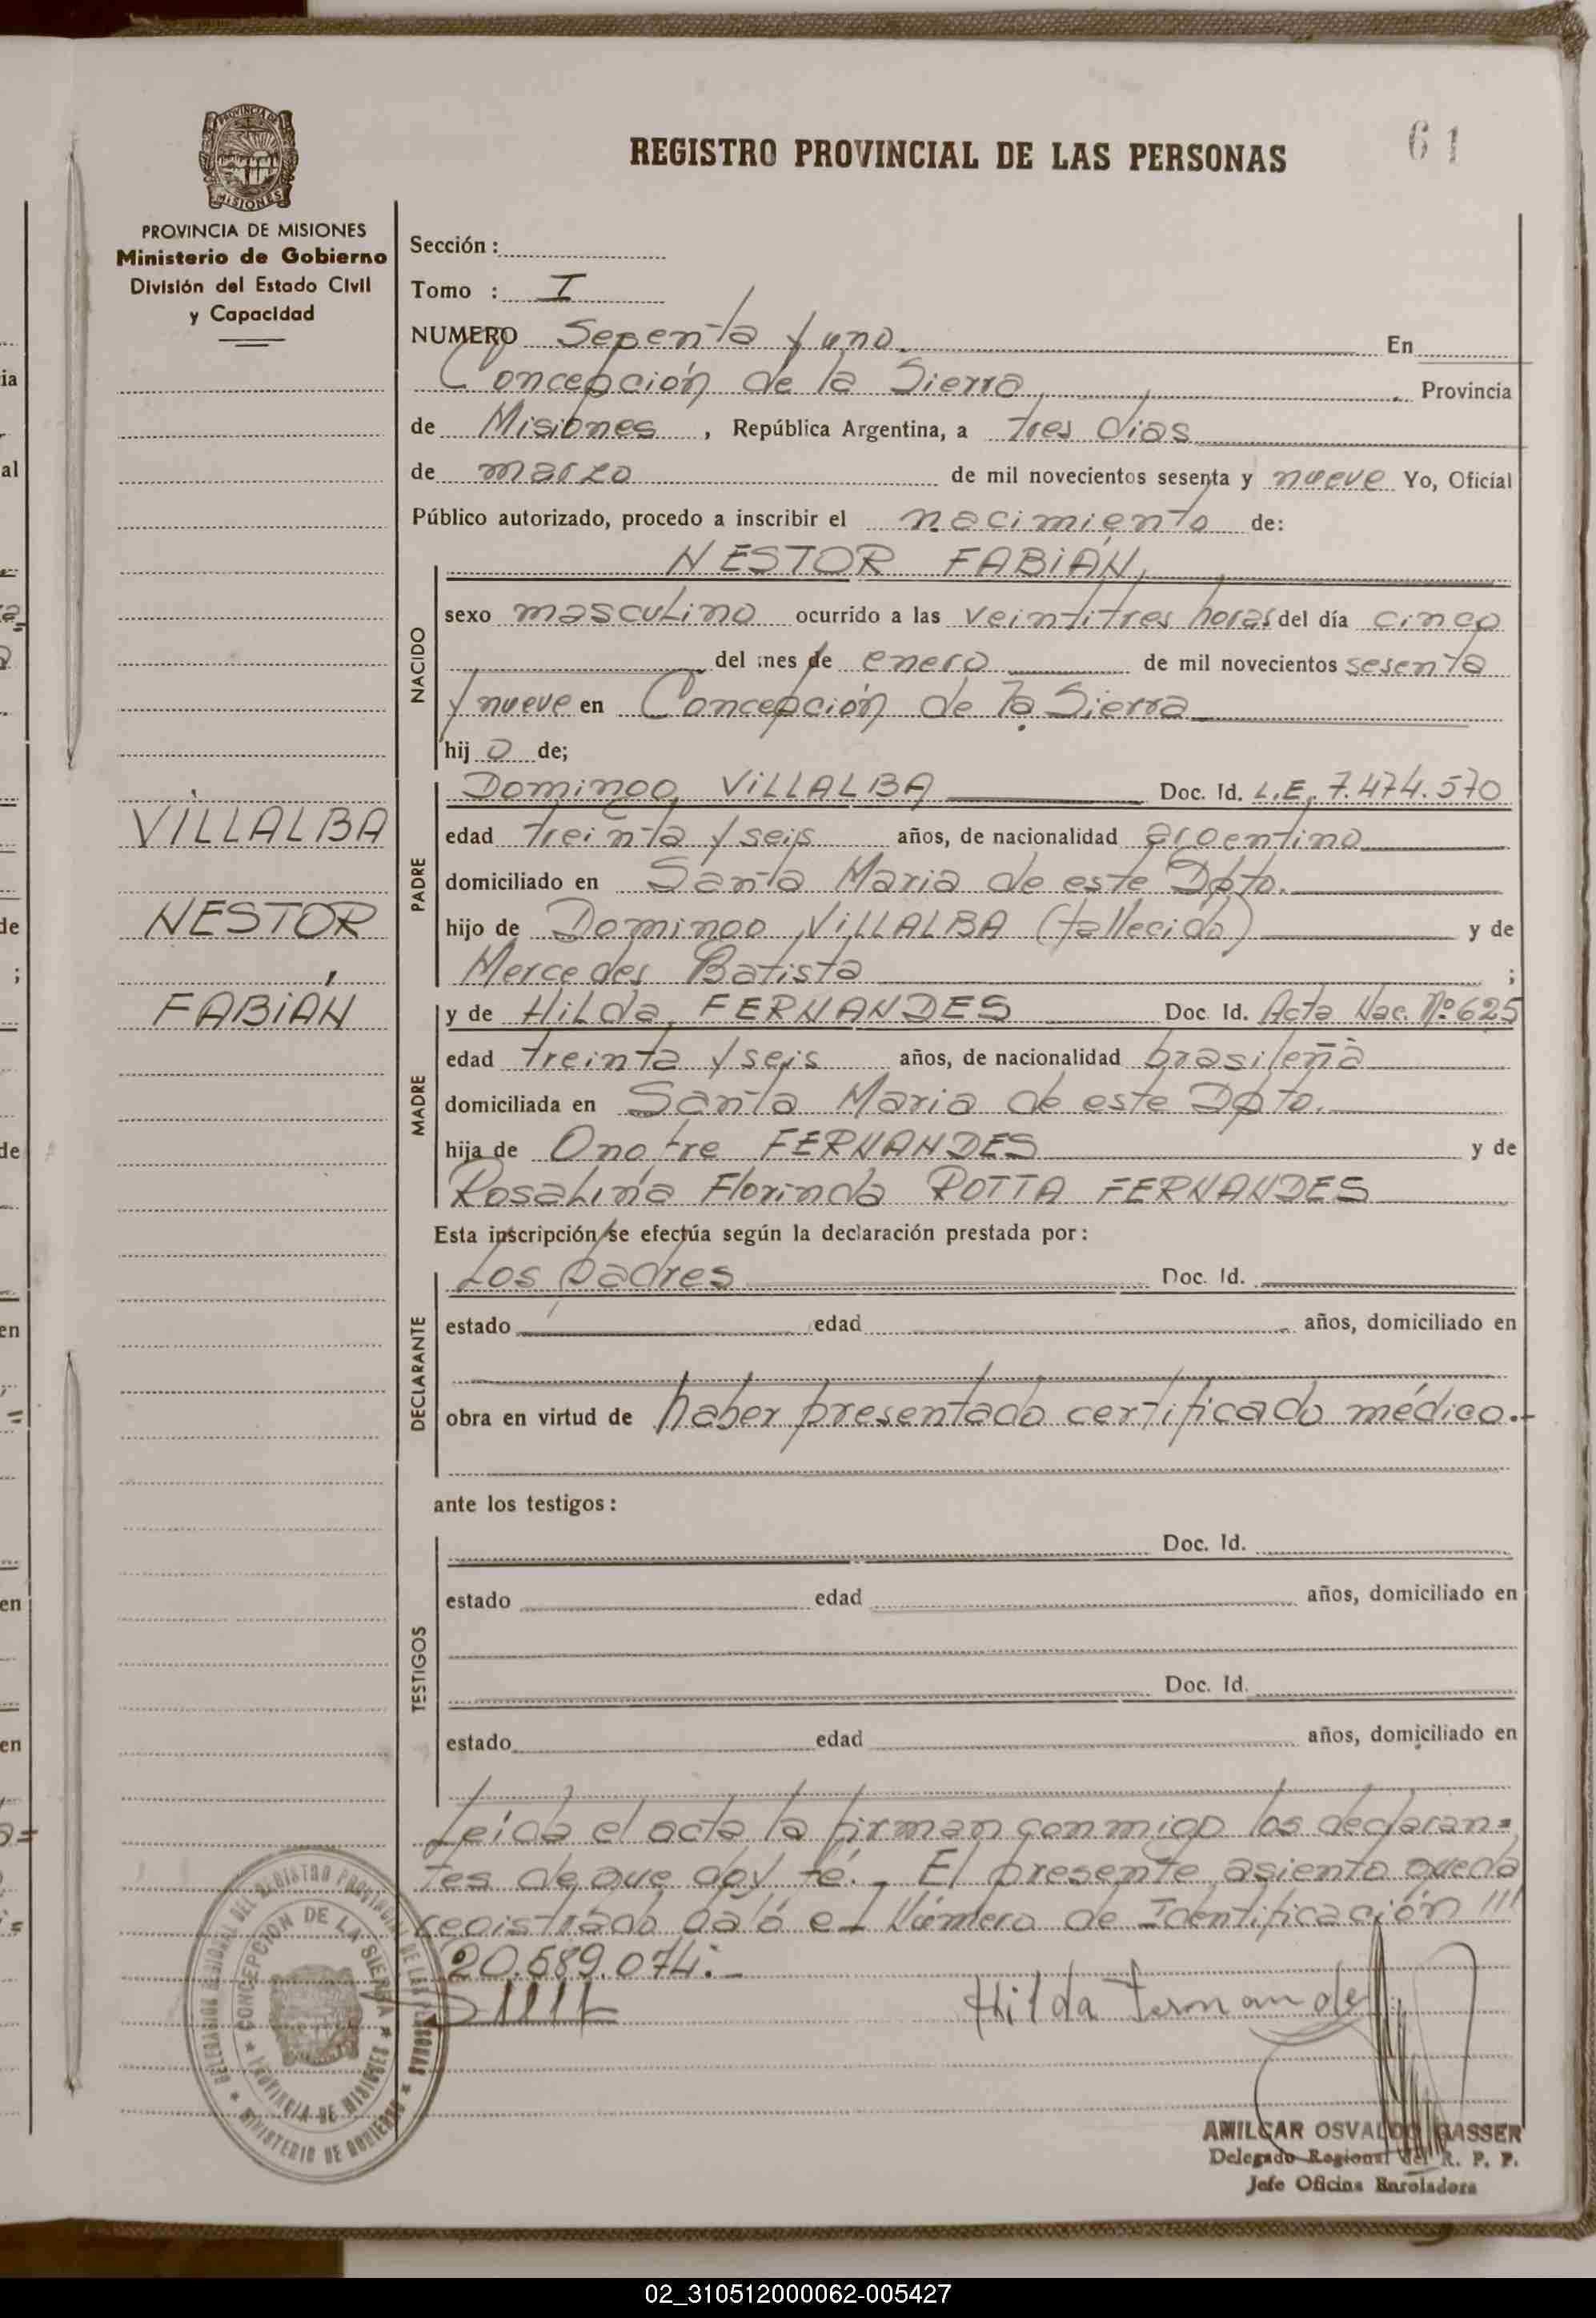 REGISTRO PROVINCIAL DE LAS PERSONAS
61
PROVINCIA DE MISIONES
PROVINCIA DE MISIONES
Ministerio de Gobierno
División del Estado Civil
y Capacidad
VILLALBA
NESTOR
FABIÁN
Sección :
Tomo : I
NUMERO Sepenta y uno. En
Concepción de la Sierra. Provincia
de Misiones, República Argentina, a tres dias
de marzo de mil novecientos sesenta y nueve Yo, Oficial
Público autorizado, procedo a inscribir el nacimiento de:
NESTOR FABIÁN,
NACIDO
sexo masculino ocurrido a las veintitres horas del día cinco
del mes de enero de mil novecientos sesenta
y nueve en Concepción de la Sierra
hij o de;
PADRE
Domingo VILLALBA Doc. Id. L.E. 7.474.570
edad treinta y seis años, de nacionalidad argentino
domiciliado en Santa Maria de este Dpto.
hijo de Domingo VILLALBA (fallecido) y de
Mercedes Batista ;
MADRE
y de Hilda FERNANDES Doc. Id. Acta Nac. Nº 625
edad treinta y seis años, de nacionalidad brasileña
domiciliada en Santa Maria de este Dpto.
hija de Onofre FERNANDES y de
Rosalina Florinda ROTTA FERNANDES
Esta inscripción se efectúa según la declaración prestada por:
DECLARANTE
Los padres Doc. Id.
estado edad años, domiciliado en
obra en virtud de haber presentado certificado médico.-
ante los testigos:
TESTIGOS
Doc. Id.
estado edad años, domiciliado en
Doc. Id.
estado edad años, domiciliado en
Leida el acta la firman conmigo los declaran=
tes de que doy fé.- El presente asiento queda
registrado bajo el Número de Identificación
20.689.074.-
Hilda Fernandes
DELEGACION REGIONAL DEL REGISTRO PROVINCIAL DE LAS PERSONAS
MINISTERIO DE GOBIERNO
CONCEPCION DE LA SIERRA
PROVINCIA DE MISIONES
AMILCAR OSVALDO GASSER
Delegado Regional del R. P. P.
Jefe Oficina Enroladora
02_310512000062-005427